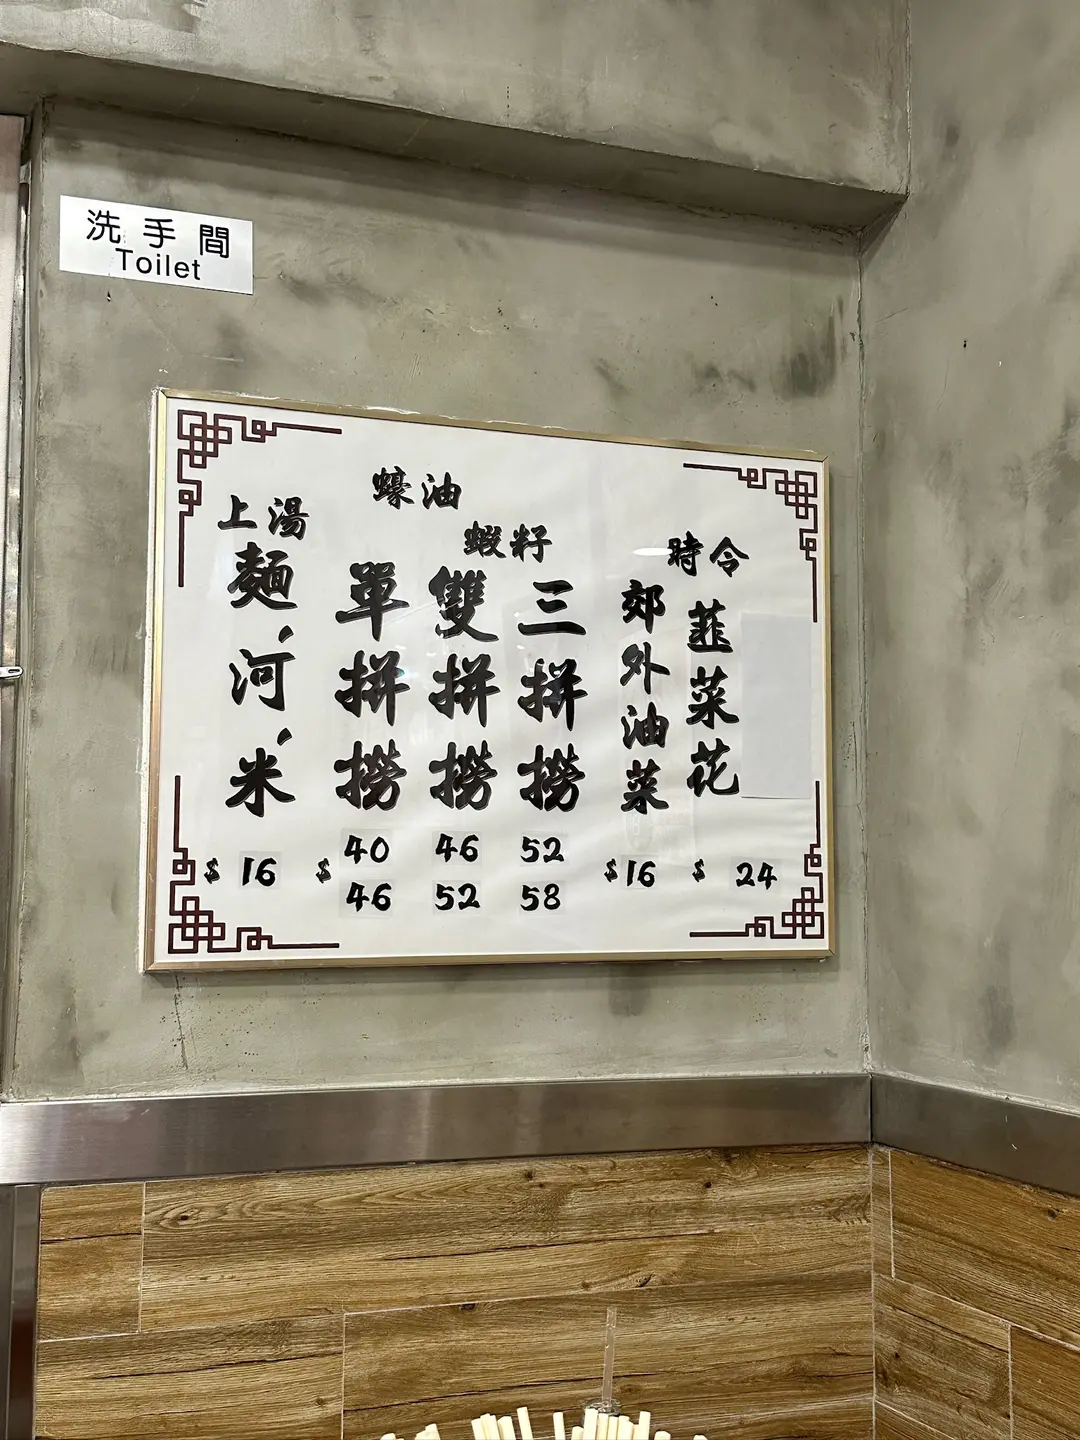 洗手間
Toilet
上湯
麵、河、米
$ 16
蠔油
蝦籽
單拼撈
雙拼撈
三拼撈
$ 40 46 52
46 52 58
郊外油菜
$16
時令
韮菜花
$ 24